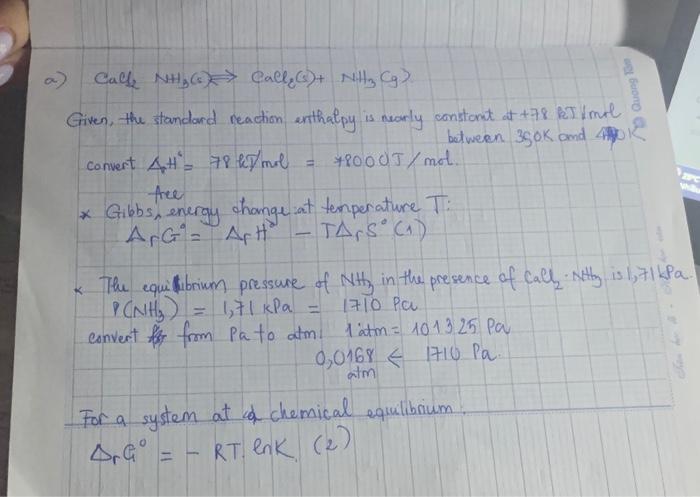 a) CaCl2 NH3(s) ⇌ CaCl2(s) + NH3(g)
Given, the standard reaction enthalpy is nearly constant at +78 kJ/mol
between 350K and 470K
convert ΔrH° = 78 kJ/mol = 78000J/mol.
free
* Gibbs energy change at temperature T:
ΔrG° = ΔrH° - TΔrS° (1)
* The equilibrium pressure of NH3 in the presence of CaCl2.NH3 is 1,71 kPa.
P(NH3) = 1,71 kPa = 1710 Pa
convert from Pa to atm 1 atm = 101325 Pa
0,0168 ← 1710 Pa.
atm
For a system at chemical equilibrium:
ΔrG° = - RT. lnK (2)
Quang